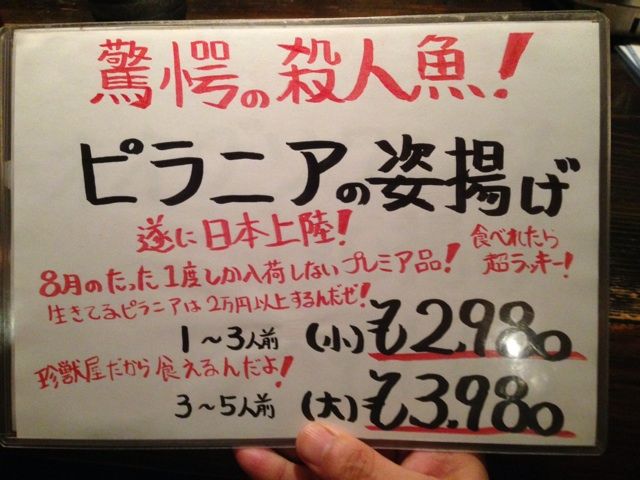 驚愕の殺人魚!
ピラニアの姿揚げ
遂に日本上陸!
食べれたら
超ラッキー!
8月のたった1度しか入荷しないプレミア品!
生きてるピラニアは2万円以上するんだぜ!
1〜3人前 (小) ¥2,980
珍獣屋だから食えるんだよ!
3〜5人前 (大) ¥3,980